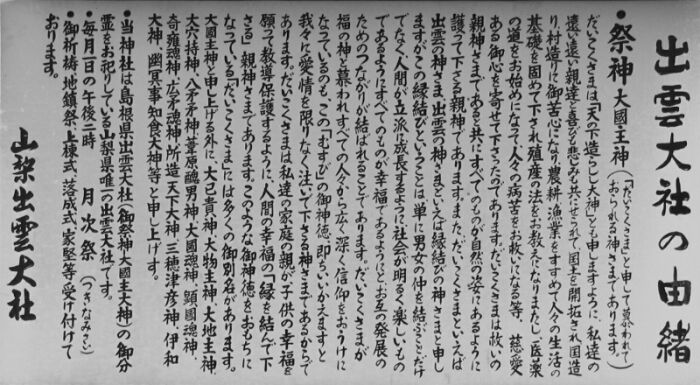 出雲大社の由緒
・祭神 大國主神(「だいこくさま」と申して慕われておられる神さまであります。)
だいこくさまは「天の下造らしし大神」とも申しますように、私達の
遠い遠い親達と喜びも悲しみも共にせられて、国土を開拓され、国造
り、村造りに御苦心になり、農耕・漁業をすすめて人々の生活の
基礎を固めて下され、殖産の法をお教えになりまたし、医薬
の道をお始めになって人々の病苦をお救いになる等、慈愛
ある御心を寄せて下さったのであります。だいこくさまは救いの
親神さまであると共にすべてのものが自然の姿にあるように
護って下さる親神であります。また、だいこくさまといえば
出雲の神さま、出雲の神さまといえば縁結びの神さまと申し
ますがこの縁結びということは単に男女の仲を結ぶことだけ
でなく人間が立派に成長するように社会が明るく楽しいもの
であるようにすべてのものが幸福であるようにとお互の発展の
ためのつながりが結ばれることであります。だいこくさまが
福の神と慕われすべての人々から広く深い信仰をおうけに
なっているのも、この「むすび」の御神徳、即ちいいかえますと
我々に愛情を限りなく注いで下さる神さまであるからで
あります。だいこくさまは私達の家庭の親が子供の幸福を
願って教導保護するように、人間の幸福の「縁を結んで下
さる」親神さまであります。このような御神徳をおもちに
なっている「だいこくさま」には多くの御別名があります。
大國主神と申し上げる外に、大己貴神、大物主神、大地主神、
大穴持神、八矛神、葦原醜男神、大國魂神、顕國魂神、
奇甕魂神、広矛魂神、所造天下大神、三穂津彦神、伊和
大神、幽冥事知食大神等と申し上げます。
・当神社は島根県出雲大社(御祭神大國主大神)の御分
霊をお祀りしている山梨県唯一の出雲大社です。
・毎月一日の午後二時 月次祭(つきなみさい)
・御祈祷、地鎮祭、上棟式、落成式、家堅等受け付けて
おります。
山梨出雲大社